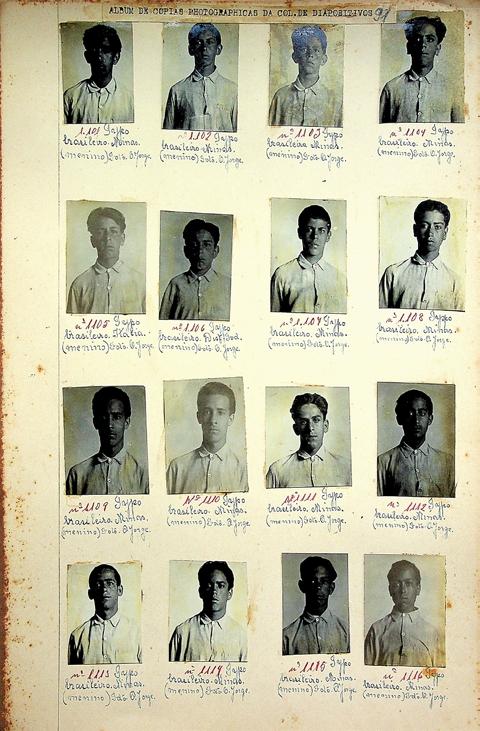 ALBUM DE COPIAS PHOTOGRAPHICAS DA COL. DE DIAPOSITIVOS 91
1.101 Typo
brasileiro. Minas.
(menino) Foto. C. Jorge.
nº 1.102 Typo
brasileiro. Minas.
(menino) Foto. C. Jorge.
nº 1103 Typo
brasileiro. Minas.
(menino) Foto. C. Jorge.
nº 1104 Typo
brasileiro. Minas.
(menino) Foto. C. Jorge.
nº 1105 Typo
brasileiro.
(menino) Foto. C. Jorge.
nº 1.106 Typo
brasileiro. Dist. Fed.
(menino) Foto. C. Jorge.
nº 1.107 Typo
brasileiro. Minas.
(menino) Foto. C. Jorge.
nº 1.108 Typo
brasileiro. Minas.
(menino) Foto. C. Jorge.
nº 1109 Typo
brasileiro. Minas.
(menino) Foto. C. Jorge.
Nº 1110 Typo
brasileiro. Minas.
(menino) Foto. C. Jorge.
Nº 1111 Typo
brasileiro. Minas.
(menino) Foto. C. Jorge.
nº 1112 Typo
brasileiro. Minas.
(menino) Foto. C. Jorge.
nº 1113 Typo
brasileiro. Minas.
(menino) Foto. C. Jorge.
nº 1114 Typo
brasileiro. Minas.
(menino) Foto. C. Jorge.
nº 1115 Typo
brasileiro. Minas.
(menino) Foto. C. Jorge.
nº 1116 Typo
brasileiro. Minas.
(menino) Foto. C. Jorge.